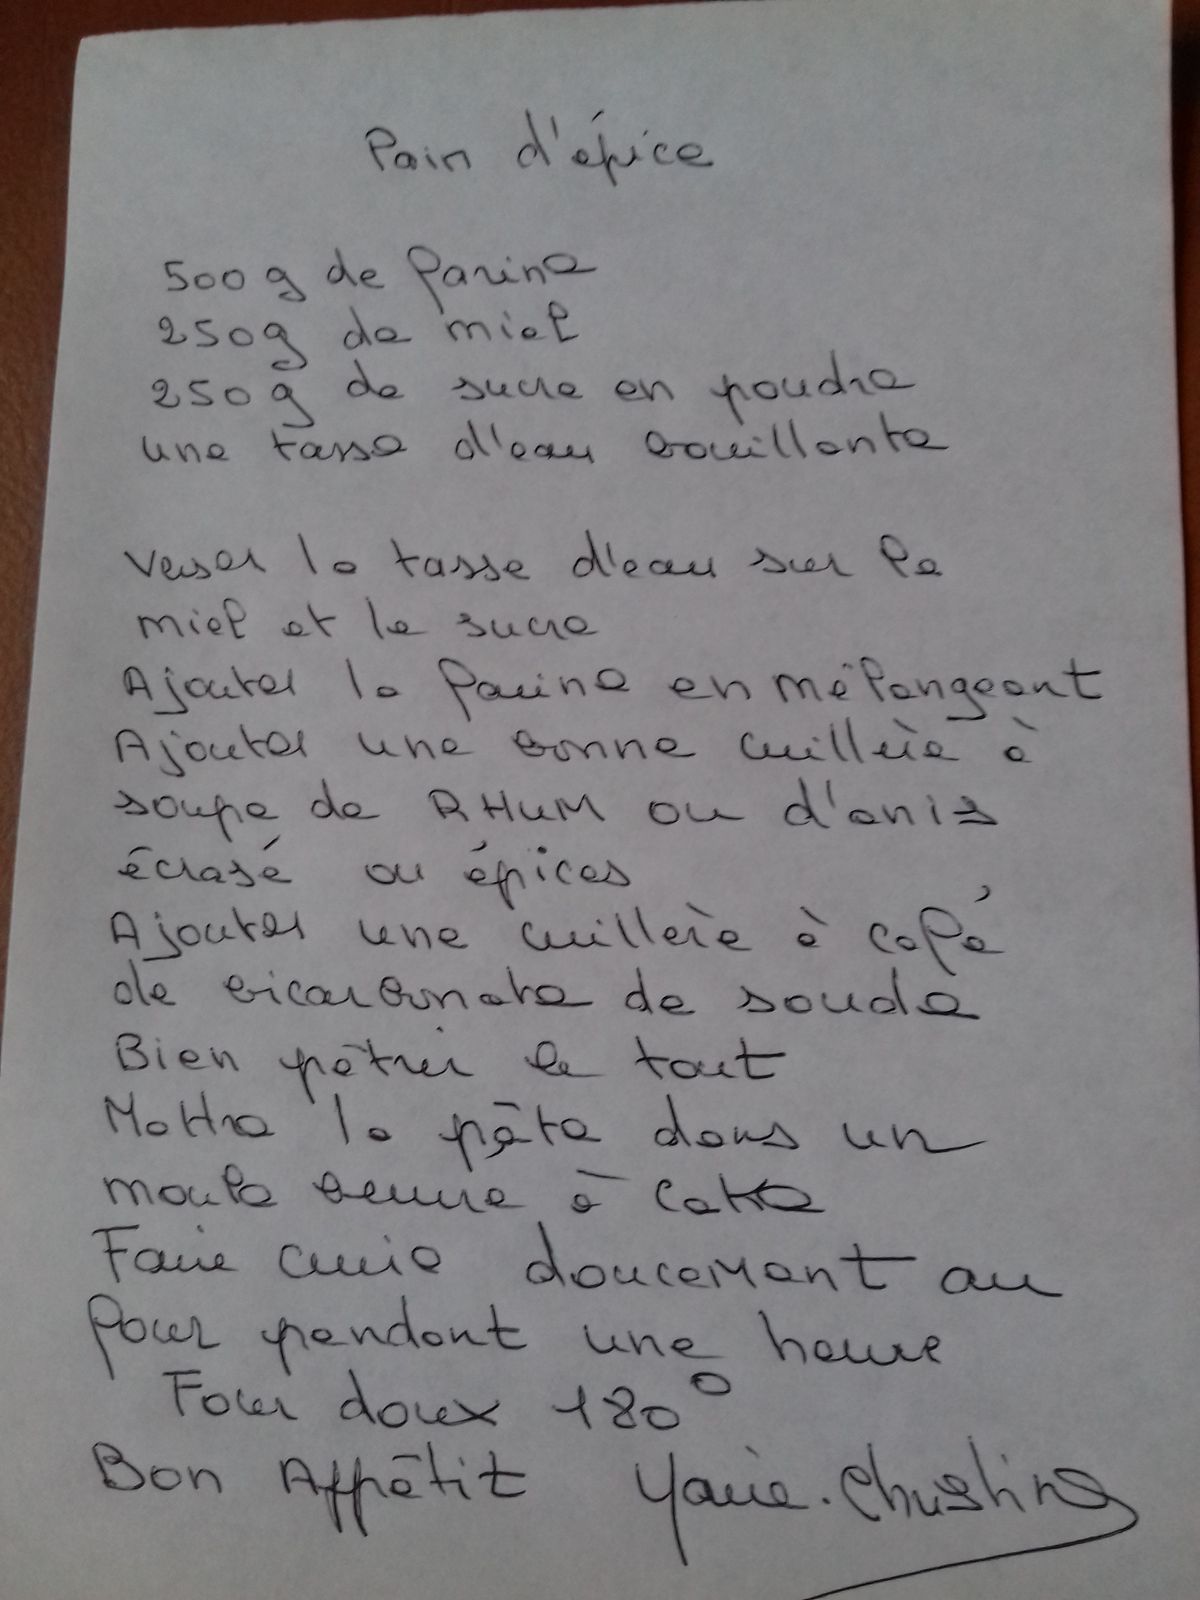 Pain d'épice
500g de farine
250g de miel
250g de sucre en poudre
une tasse d'eau bouillante
Verser la tasse d'eau sur le
miel et le sucre
Ajouter la farine en mélangeant
Ajouter une bonne cuillère à
soupe de RHUM ou d'anis
écrasé ou épices
Ajouter une cuillère à café
de bicarbonate de soude
Bien pêtrir le tout
Mettre la pâte dans un
moule beurré à cake
Faire cuire doucement au
four pendant une heure
Four doux 180°
Bon Appêtit Marie-Christine